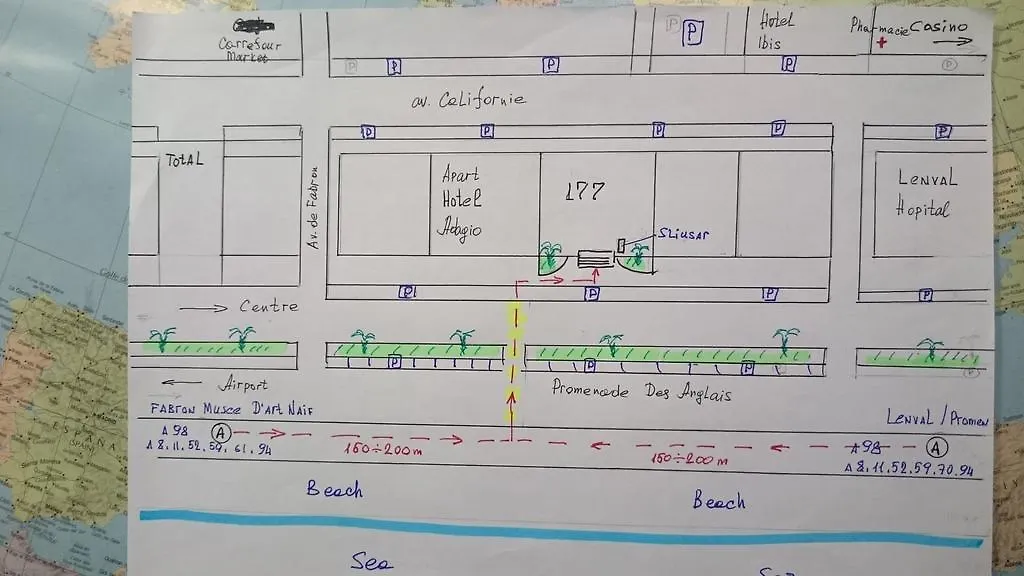 Carrefour
Market
P
P
P
P
P
Hotel
Ibis
P
Pharmacie
Casino
P
av. Celifornie
P
P
P
P
P
TotAL
Av. de Fabron
Apart
Hotel
Adagio
177
SLiUSAR
LENVAL
Hopital
P
P
P
P
Centre
P
P
P
P
Airport
Promenade Des Anglais
FABRON MUSCE D'ART NAIF
LENVAL / Promen
A98
A
150÷200m
150÷200m
A98
A
A 8.11.52.59.61.94
A 8.11.52.59.70.94
Beach
Beach
Sea
ESPAÑA